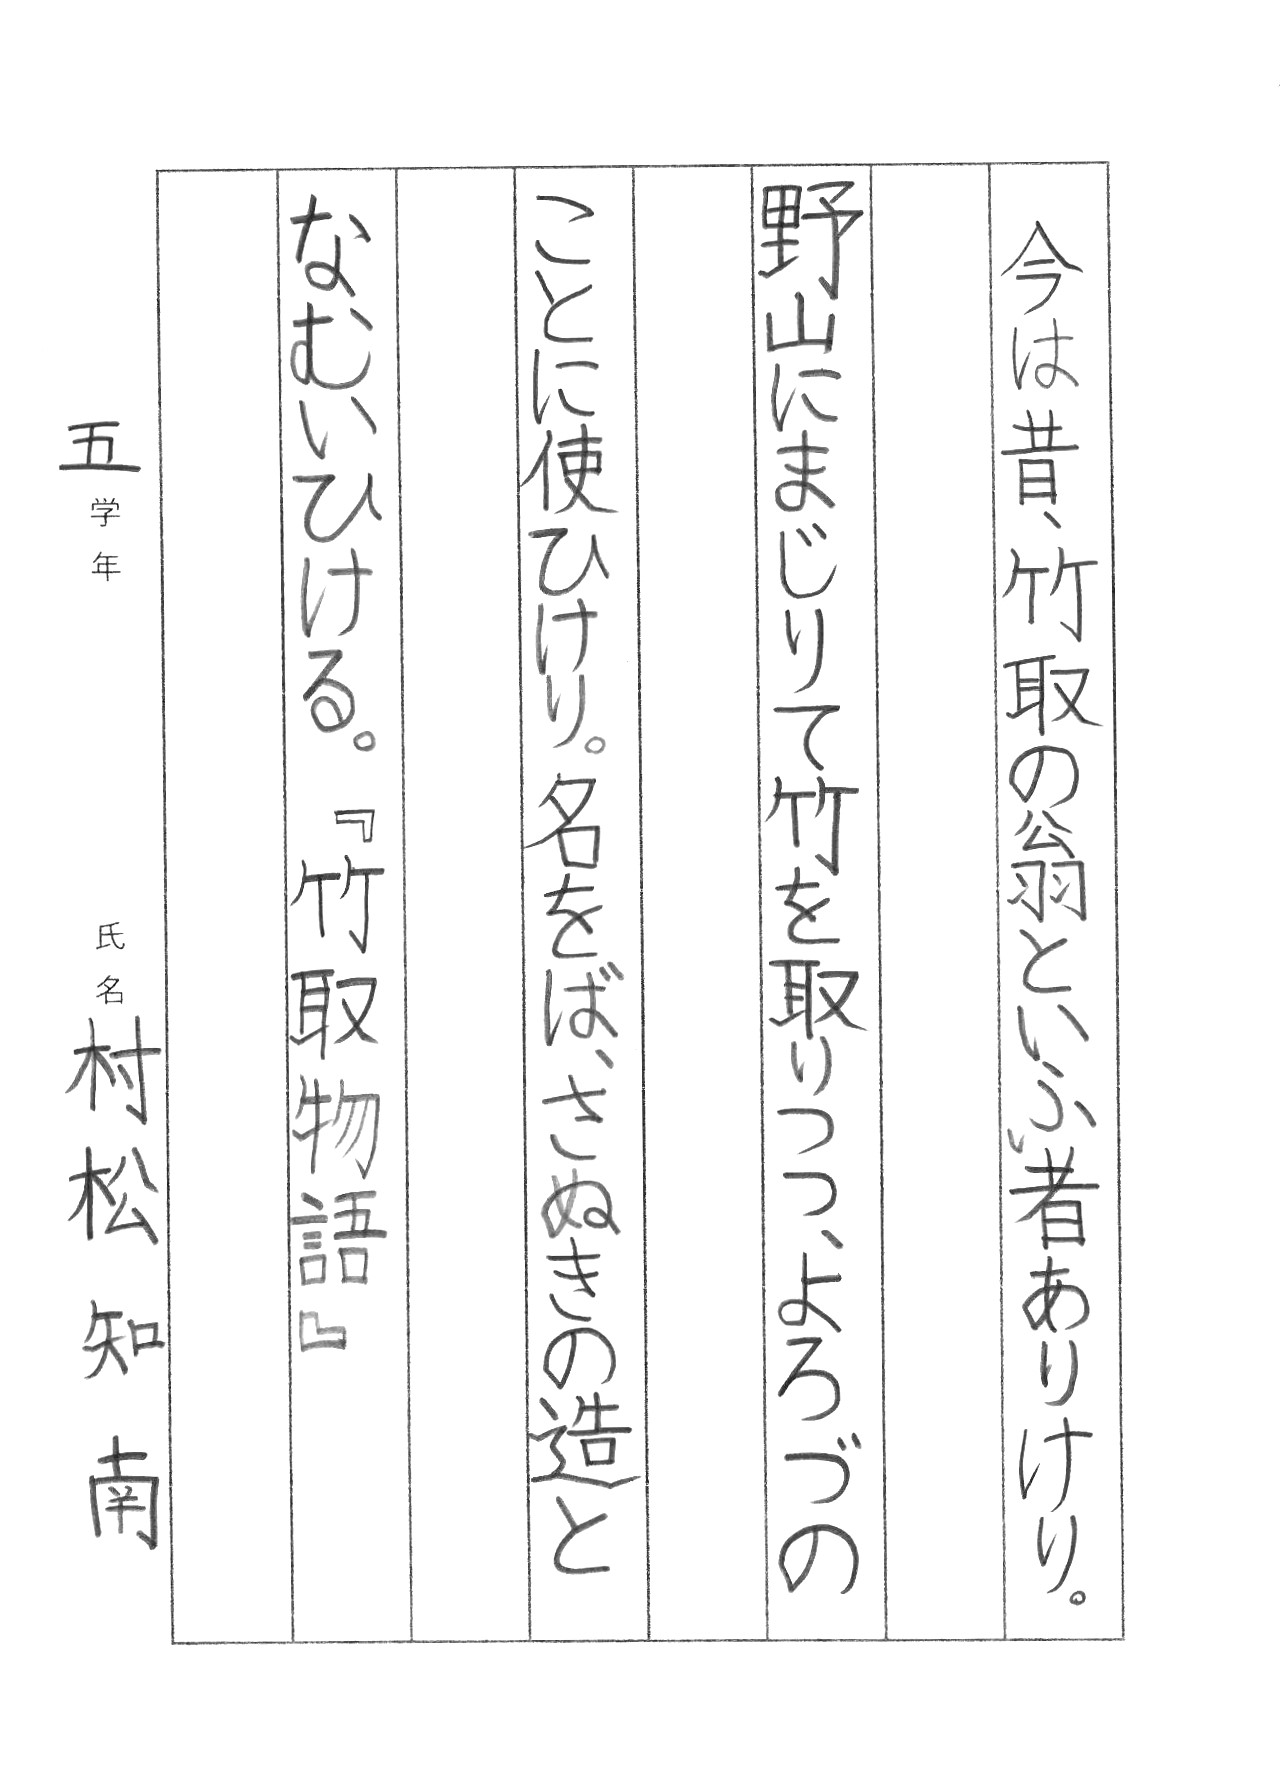 今は昔、竹取の翁といふ者ありけり。
野山にまじりて竹を取りつつ、よろづの
ことに使ひけり。名をば、さぬきの造と
なむいひける。『竹取物語』
五学年 氏名 村松知南